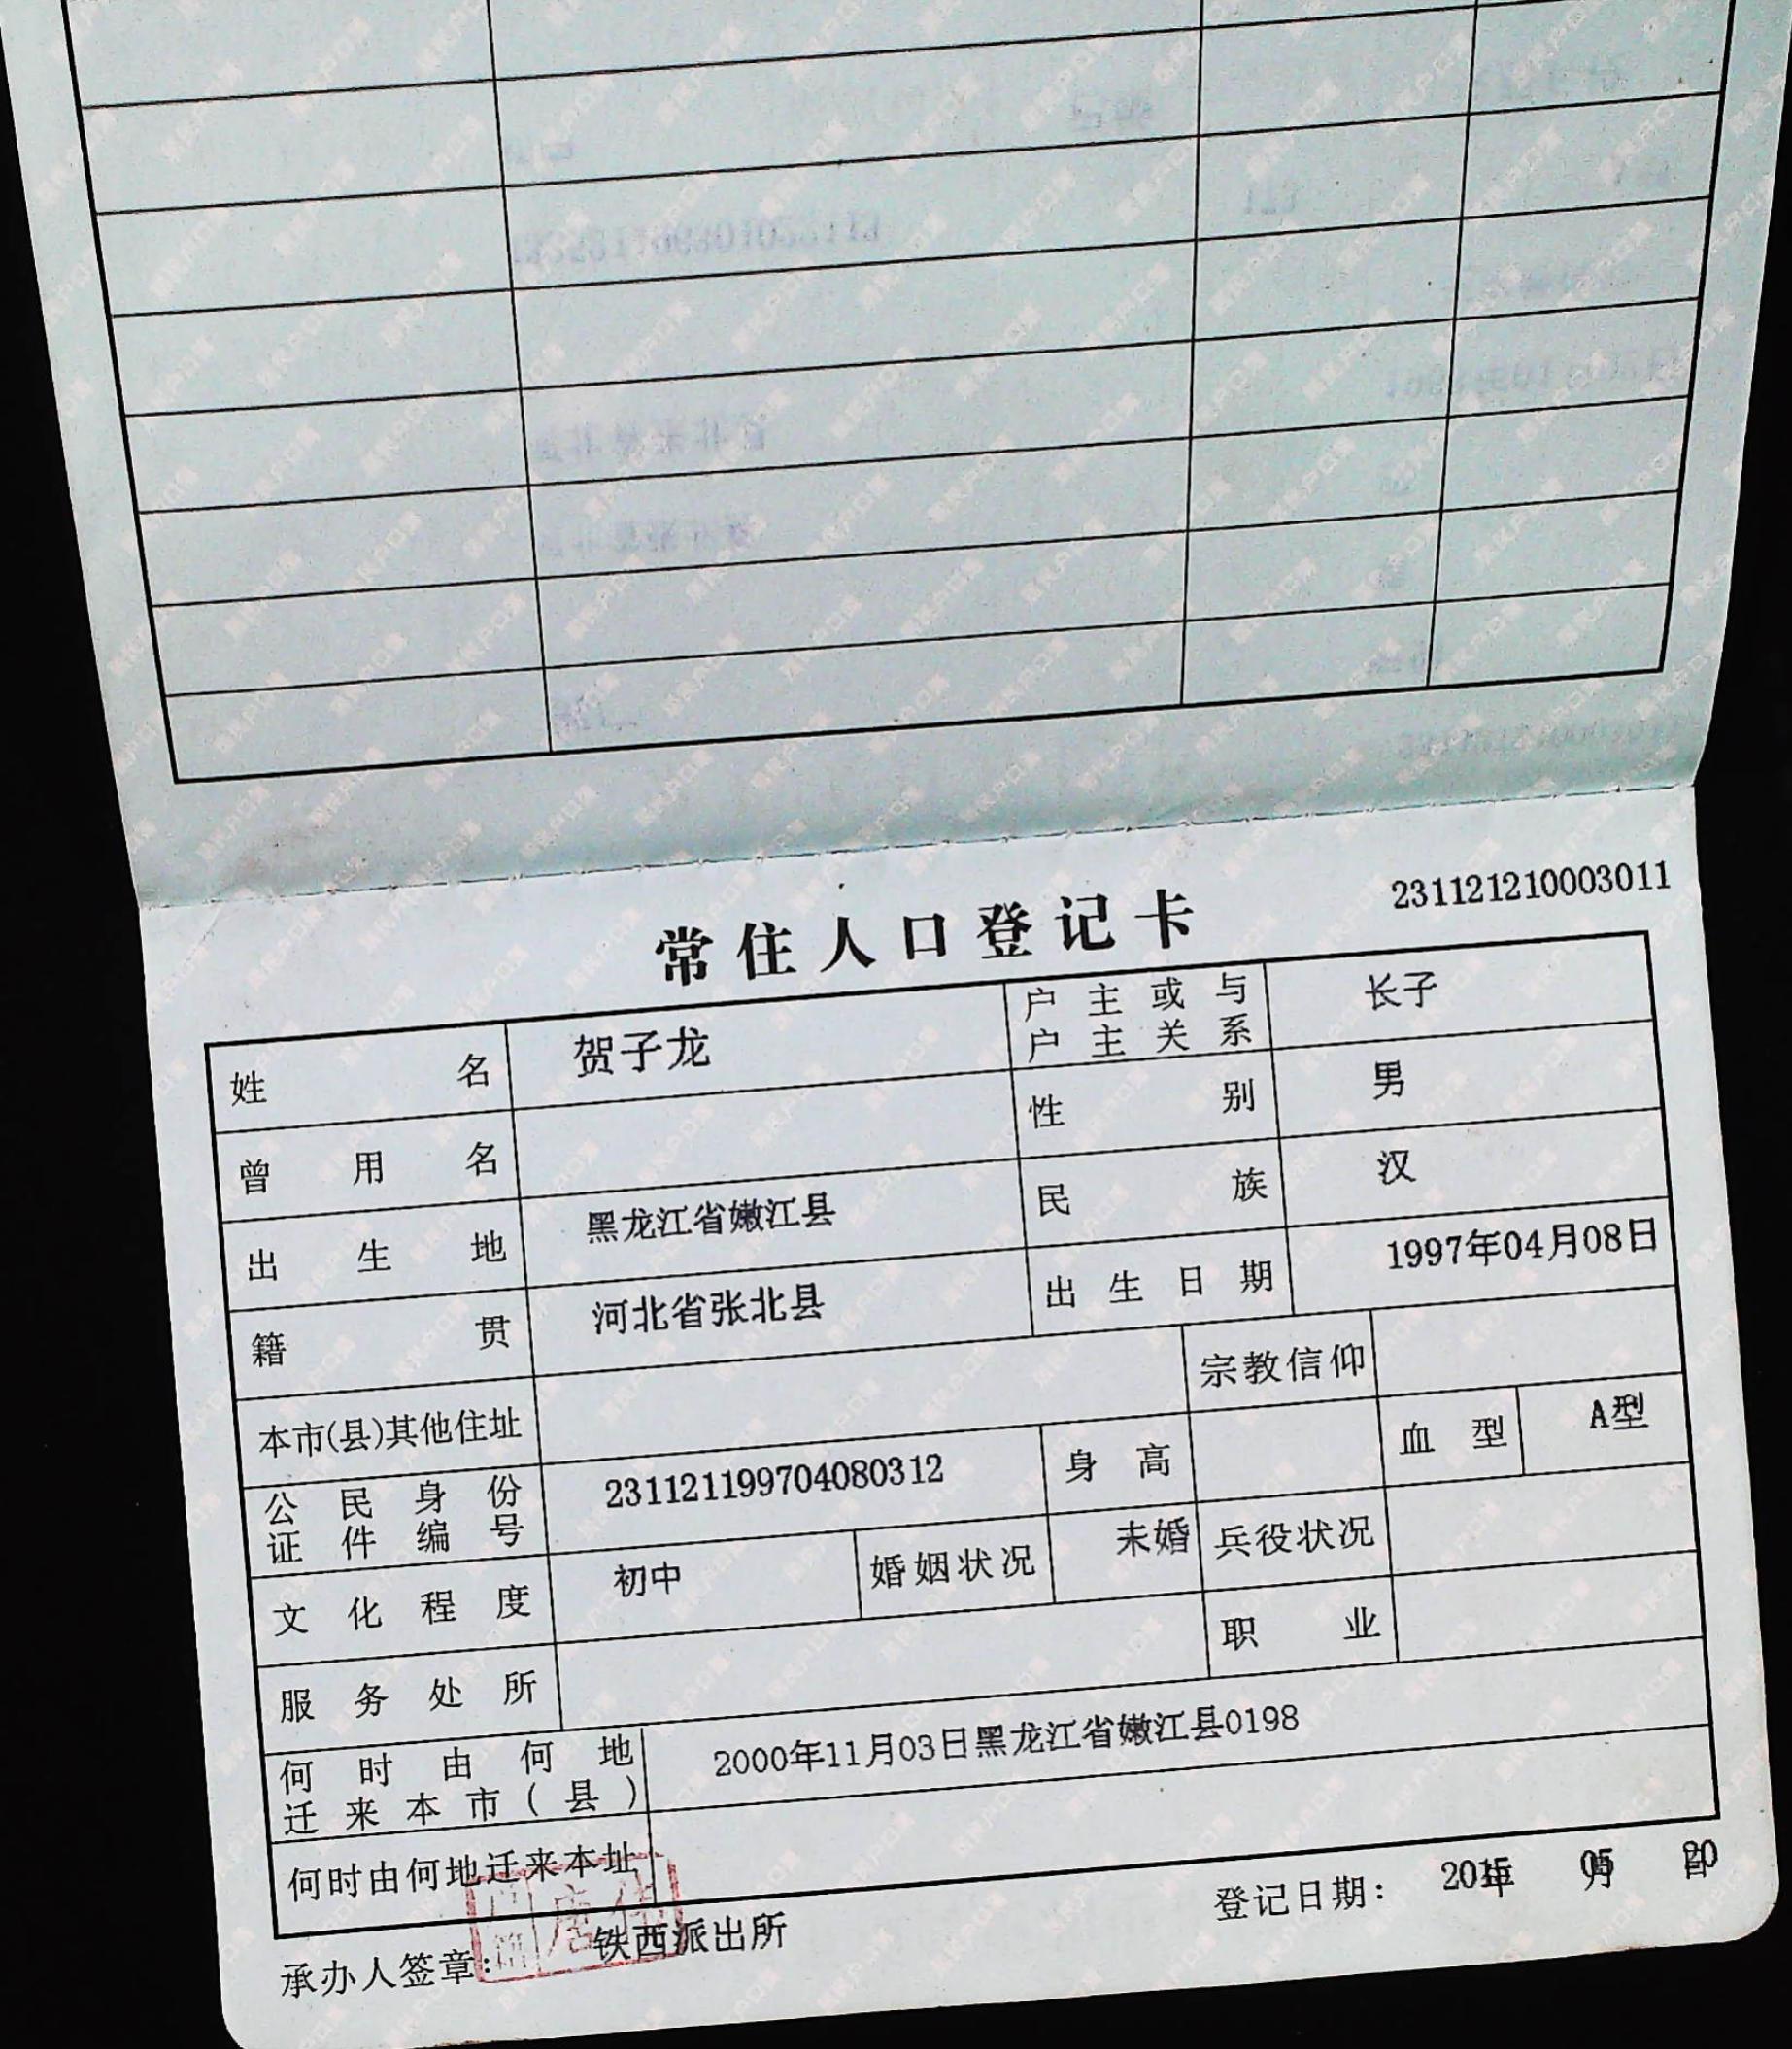 常住人口登记卡
231121210003011
姓名 贺子龙 户主或与户主关系 长子
曾用名 性别 男
出生地 黑龙江省嫩江县 民族 汉
籍贯 河北省张北县 出生日期 1997年04月08日
本市(县)其他住址 宗教信仰
公民身份证件编号 231121199704080312 身高 血型 A型
文化程度 初中 婚姻状况 未婚 兵役状况
服务处所 职业
何时由何地迁来本市(县) 2000年11月03日黑龙江省嫩江县0198
何时由何地迁来本址
承办人签章: 铁西派出所 登记日期: 2015年05月20日